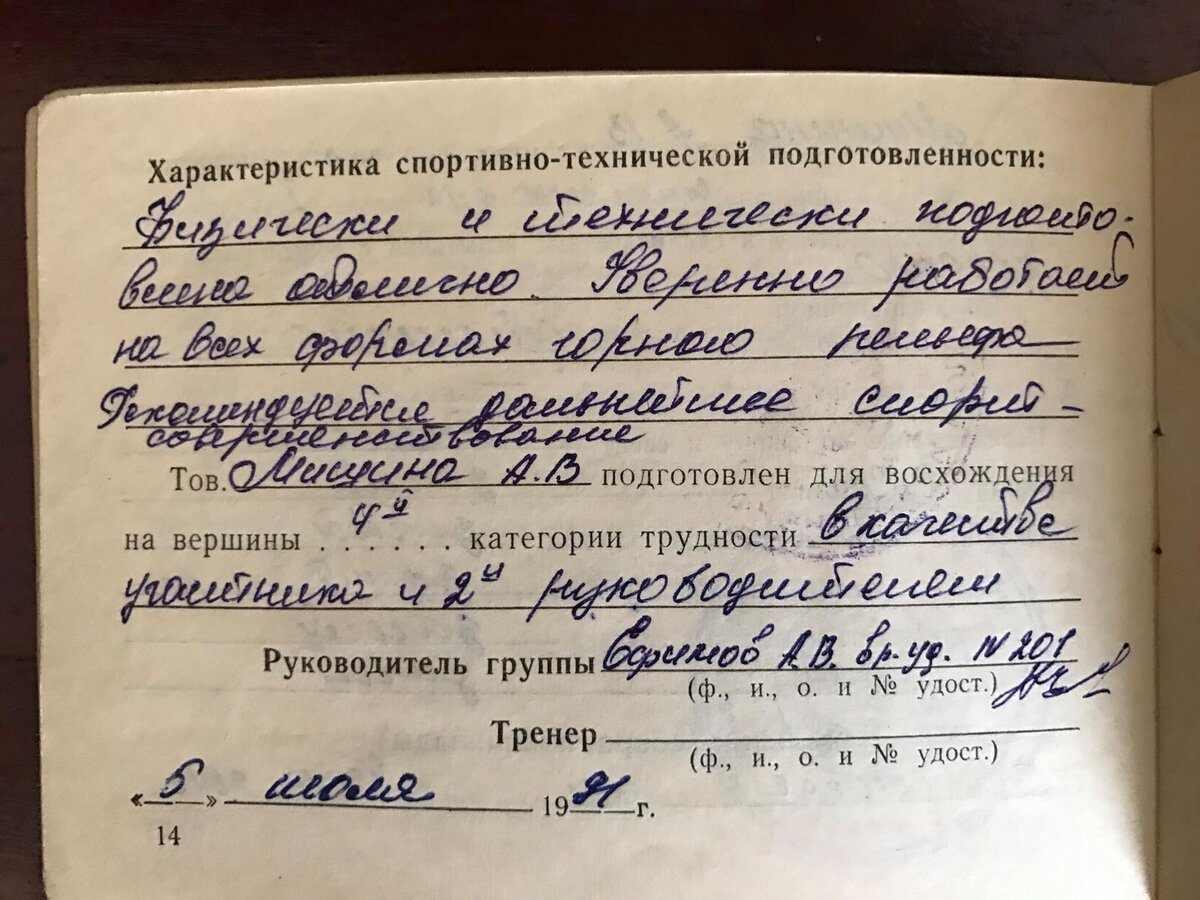 Характеристика спортивно-технической подготовленности:
Физически и технически подгото-
влена отлично. Уверенно работает
на всех формах горного рельефа
Рекомендуется дальнейшее спорт-
совершенствование
Тов. Мишина А.В подготовлен для восхождения
на вершины 4й категории трудности в качестве
участника и 2й руководителем
Руководитель группы Ефимов А.В. вр.уд. N 201
(ф., и., о. и № удост.)
Тренер
(ф., и., о. и № удост.)
«5» июля 1991 г.
14